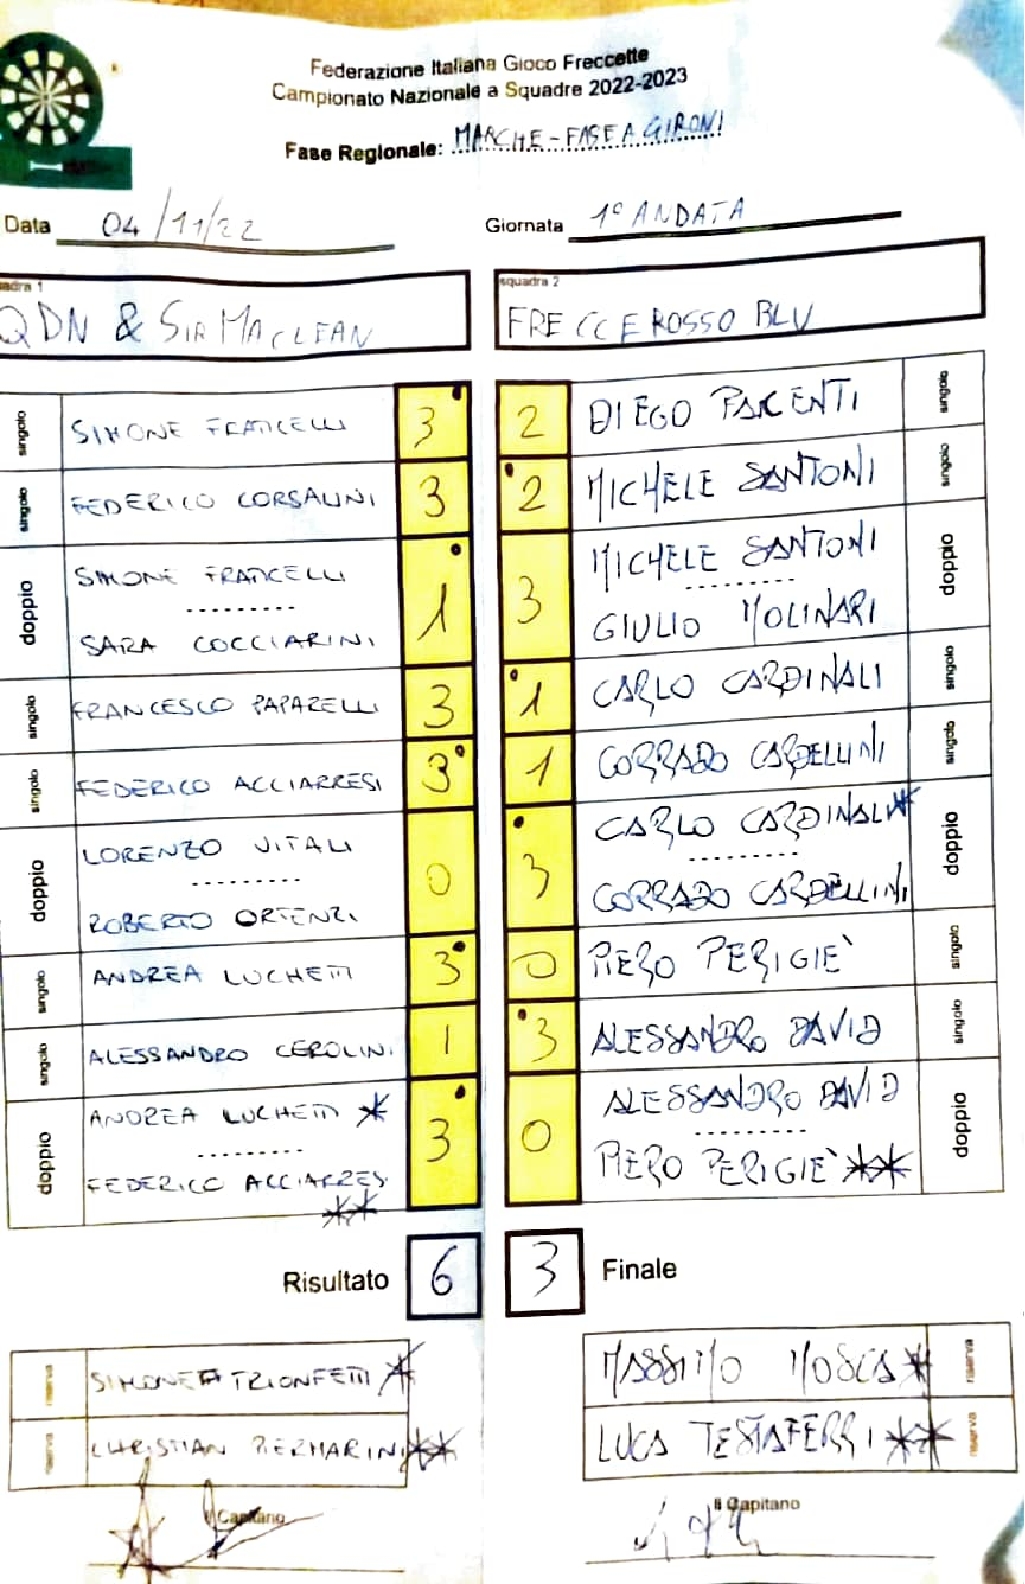 Federazione Italiana Gioco Freccette
Campionato Nazionale a Squadre 2022-2023
Fase Regionale: MARCHE - FASE A GIRONI
Data 04/11/22 Giornata 1° ANDATA
squadra 2
QDN & SIR MACLEAN FRECCEROSSO BLU
singolo SIMONE FRATICELLI 3 2 DIEGO PACENTI singolo
singolo FEDERICO CORSALINI 3 2 MICHELE SANTONI singolo
doppio SIMONE FRATICELLI 1 3 MICHELE SANTONI doppio
SARA COCCIARINI GIULIO MOLINARI
singolo FRANCESCO PAPARELLI 3 1 CARLO CARDINALI singolo
singolo FEDERICO ACCIARRESI 3 1 CORRADO CARDELLINI singolo
doppio LORENZO VITALI 0 3 CARLO CARDINALI* doppio
ROBERTO ORTENZI CORRADO CARDELLINI
singolo ANDREA LUCHETTI 3 0 PIERO PERIGIE' singolo
singolo ALESSANDRO CEROLINI 1 3 ALESSANDRO DAVID singolo
doppio ANDREA LUCHETTI * 3 0 ALESSANDRO DAVID doppio
FEDERICO ACCIARRESI ** PIERO PERIGIE' **
Risultato 6 3 Finale
riserva SIMONE TRIONFETTI * MASSIMO MOSCA * riserva
riserva CHRISTIAN PIERMARINI ** LUCA TESTAFERRI ** riserva
Il Capitano Il Capitano